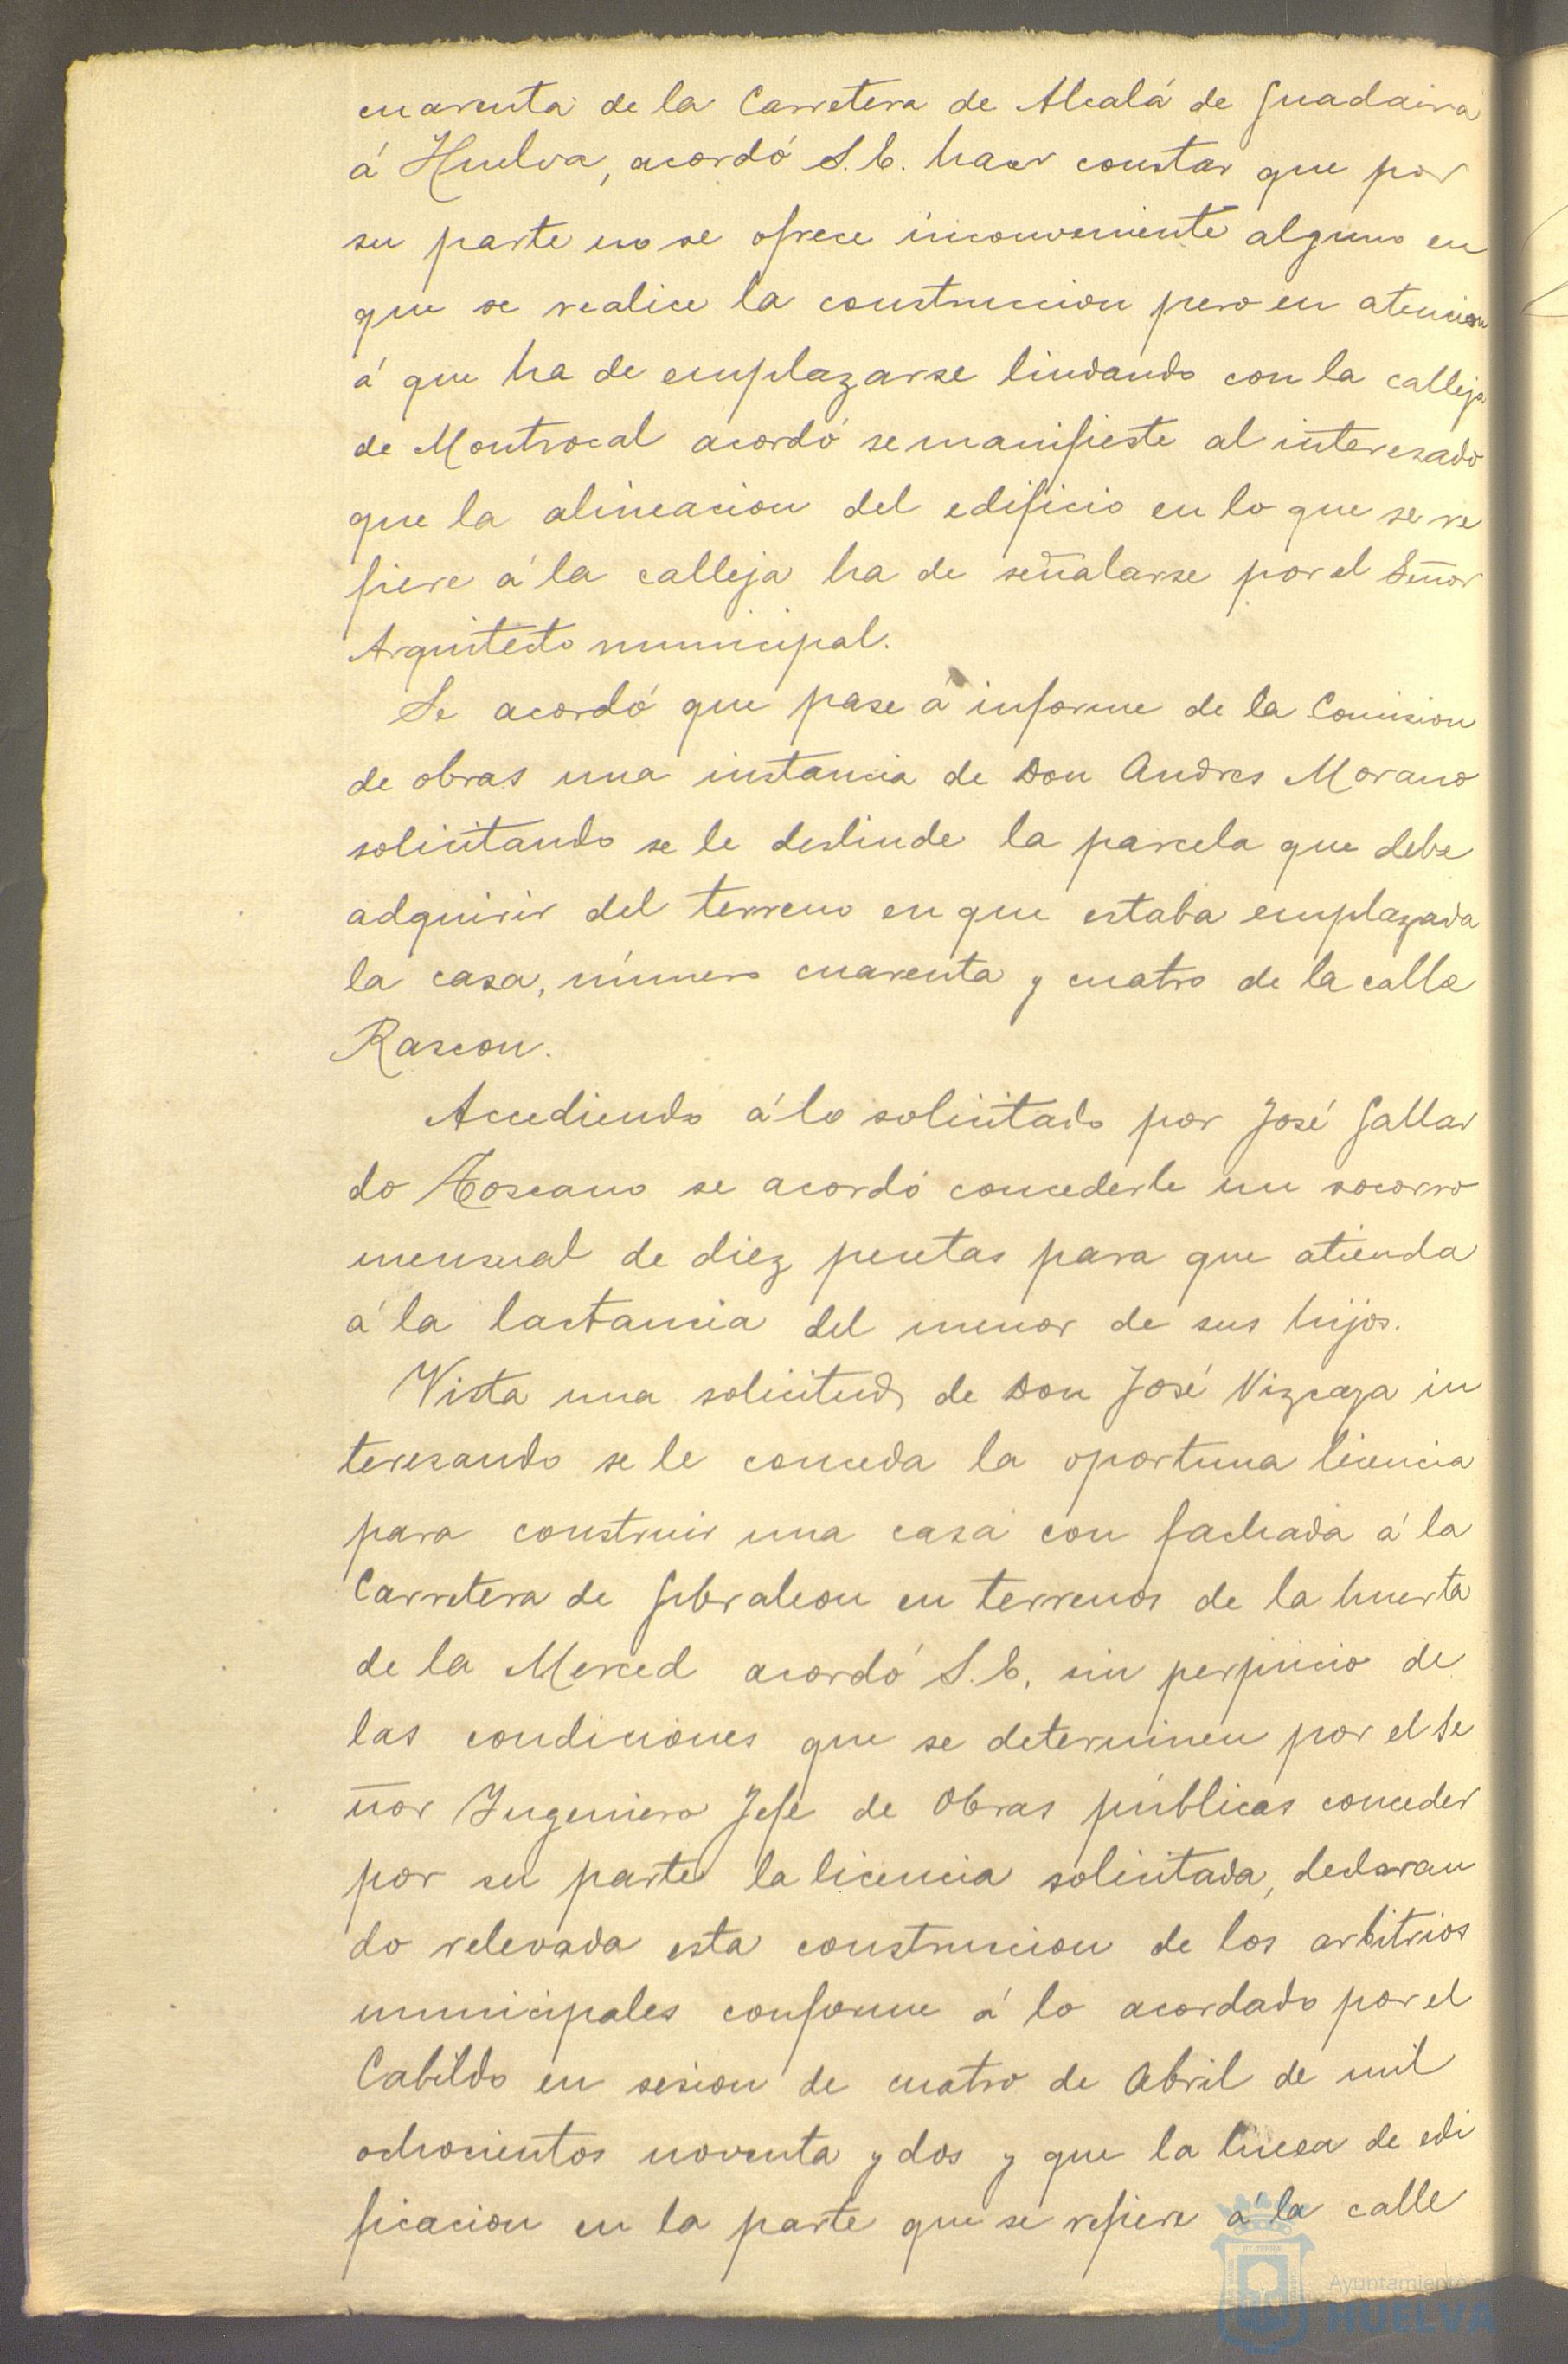 cuarenta de la Carretera de Alcalá de Guadaira
á Huelva, acordó S.C. hacer constar que por
su parte no se ofrece inconveniente alguno en
que se realice la construccion pero en atencion
á que ha de emplazarse lindando con la calleja
de Montrocal acordó se manifieste al interesado
que la alineacion del edificio en lo que se re
fiere á la calleja ha de señalarse por el Señor
Arquitecto municipal.
Se acordó que pase á informe de la Comision
de obras una instancia de Don Andres Morano
solicitando se le deslinde la parcela que debe
adquirir del terreno en que estaba emplazada
la casa, número cuarenta y cuatro de la calle
Rascon.
Accediendo á lo solicitado por José Gallar
do Toscano se acordó concederle un socorro
mensual de diez pesetas para que atienda
á la lactancia del menor de sus hijos.
Vista una solicitud de Don José Vizcaya in
teresando se le conceda la oportuna licencia
para construir una casa con fachada á la
Carretera de Gibraleon en terrenos de la huerta
de la Merced acordó S.C. sin perjuicio de
las condiciones que se determinen por el Se
ñor Ingeniero Jefe de Obras públicas conceder
por su parte la licencia solicitada, declaran
do relevada esta construccion de los arbitrios
municipales conforme á lo acordado por el
Cabildo en sesion de cuatro de Abril de mil
ochocientos noventa y dos y que la linea de edi
ficacion en la parte que se refiere á la calle
Ayuntamiento
HUELVA